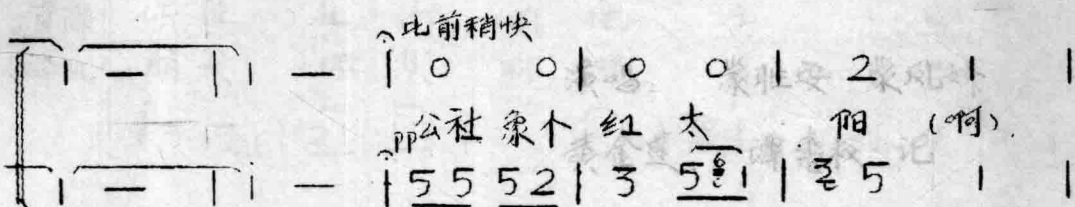 比前稍快
1 — | 1 — | 0 0 | 0 0 | 2 1 |
pp 公社 象个 红太阳 (啊)
1 — | 1 — | 5 5 5 2 | 3 5 1 | 5 1 |